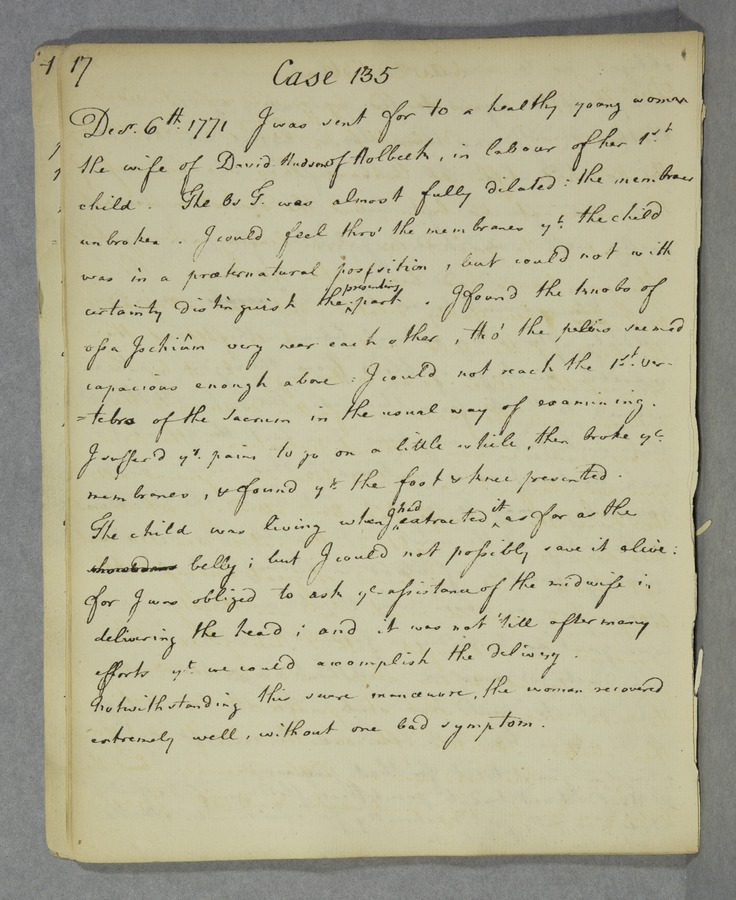 17
Case 135
Decr. 6th. 1771 I was sent for to a healthy young woman
the wife of David Hudson of Holbeck, in labour of her 1st
child. The Os T. was almost fully dilated: the membranes
unbroken. I could feel thro' the membranes yt. the child
was in a præternatural position, but could not with
certainty distinguish the presenting part. I found the knobs of
ossa Ischium very near each other, tho' the pelvis seemed
capacious enough above: I could not reach the 1st. ver-
=tebra of the sacrum in the usual way of examining.
I suffer'd ye. pains to go on a little while, then broke ye.
membranes, & found yt. the foot & knee presented.
The child was living when I had extracted it as far as the
belly; but I could not possibly save it alive:
for I was obliged to ask ye. assistance of the midwife in
delivering the head; and it was not 'till after many
efforts yt. we could accomplish the delivery.
Notwithstanding this severe manœuvre, the woman recovered
extremely well, without one bad symptom.